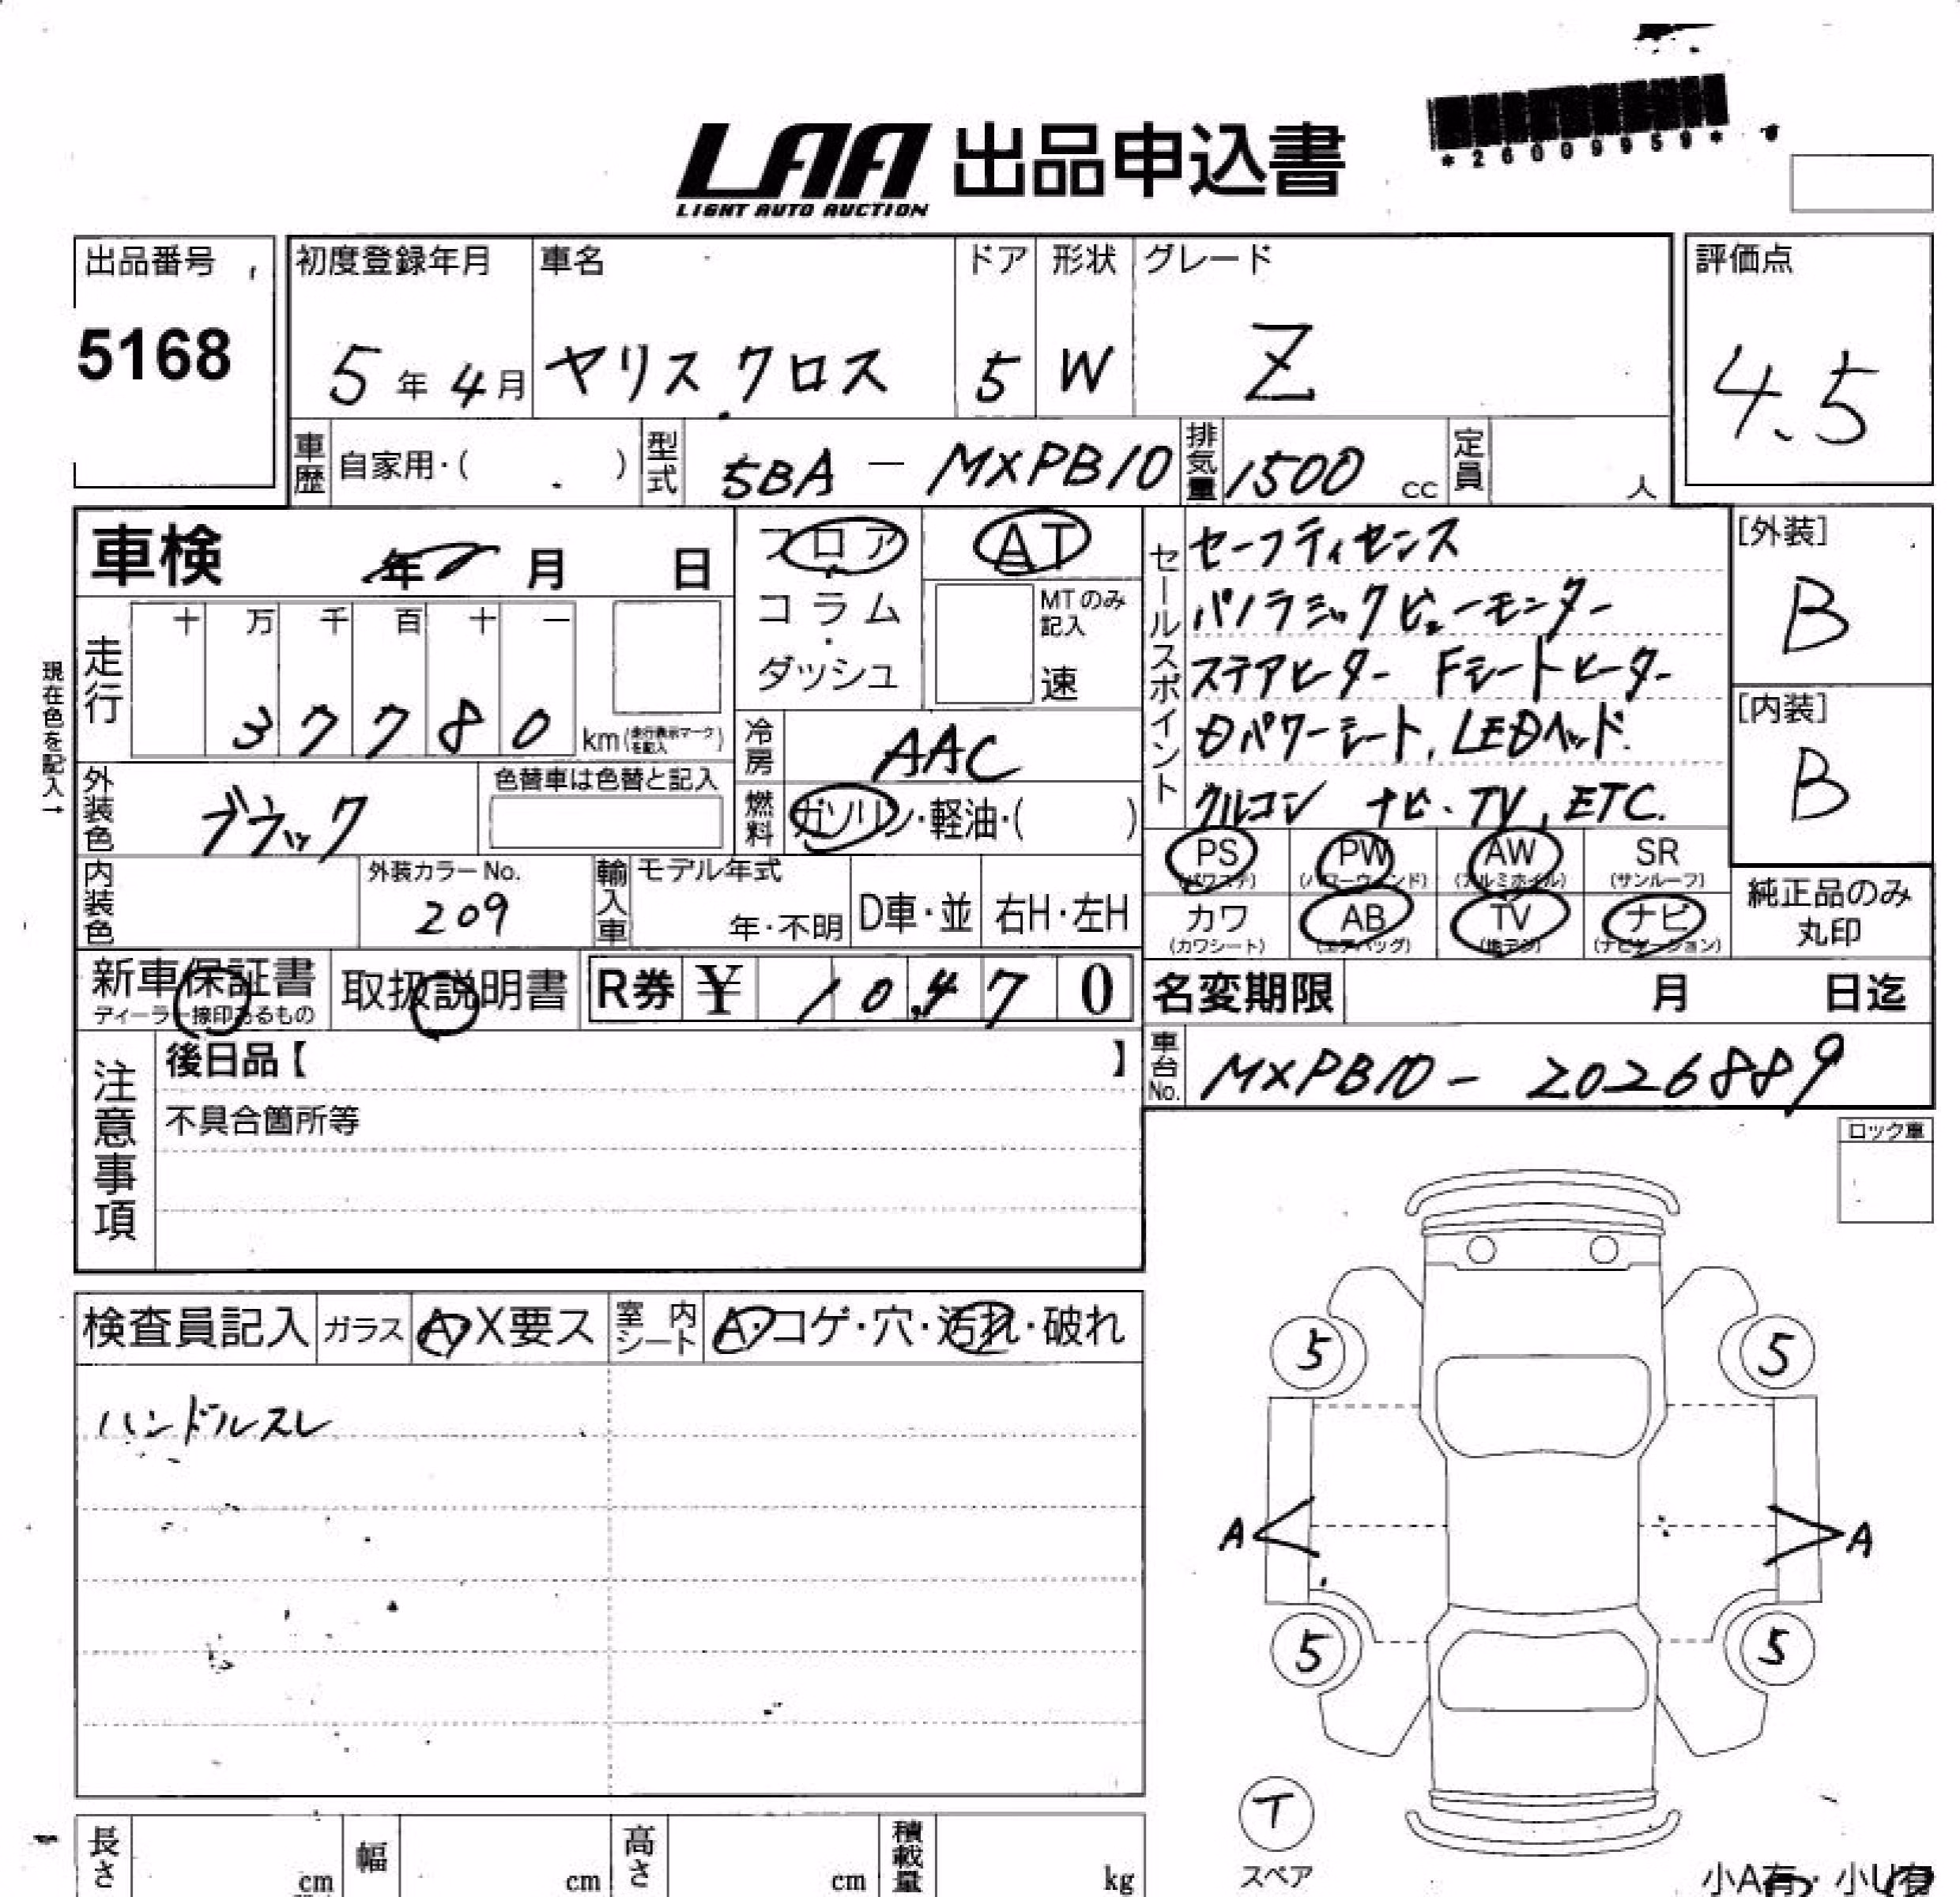 *26009959*
LAA 出品申込書
LIGHT AUTO AUCTION
出品番号
5168
初度登録年月
5年4月
車名
ヤリスクロス
ドア
5
形状
W
グレード
Z
評価点
4.5
車歴
自家用・( )
型式
5BA - MXPB10
排気量
1500 cc
定員
人
車検 年 月 日
フロア
・
コラム
・
ダッシュ
AT
MTのみ
記入
速
セールスポイント
セーフティセンス
パノラミックビューモンター
ステアヒーター Fシートヒーター
Dパワーシート, LEDヘッド.
クルコン ナビ・TV, ETC.
[外装]
B
[内装]
B
現在色を記入→
走行
十 万 千 百 十 一
3 7 7 8 0
km(走行表示マークを記入)
冷房
AAC
外装色
ブラック
色替車は色替と記入
燃料
ガソリン・軽油・( )
PS
(パワステ)
PW
(パワーウィンド)
AW
(アルミホイル)
SR
(サンルーフ)
カワ
(カワシート)
AB
(エアバッグ)
TV
(地デジ)
ナビ
(ナビゲーション)
純正品のみ
丸印
内装色
外装カラーNo.
209
輸入車
モデル年式
年・不明
D車・並
右H・左H
新車保証書
ディーラー捺印あるもの
取扱説明書
R券 ¥ 10,470
名変期限 月 日迄
車台No.
MXPB10 - 2026889
注意事項
後日品【 】
不具合箇所等
ロック車
検査員記入
ガラス
A・X要ス
室内シート
A・コゲ・穴・汚れ・破れ
ハンドルスレ
5
5
A
A
5
5
T
スペア
長さ
cm
幅
cm
高さ
cm
積載量
kg
小A有・小U有